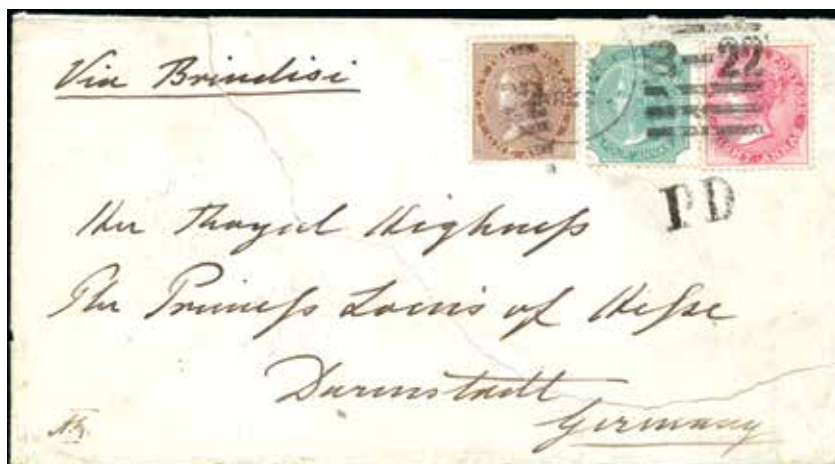 Via Brindisi
B 22
EIGHT ANNAS
P D
Her Royal Highness
The Princess Louis of Hesse
Darmstadt
Germany